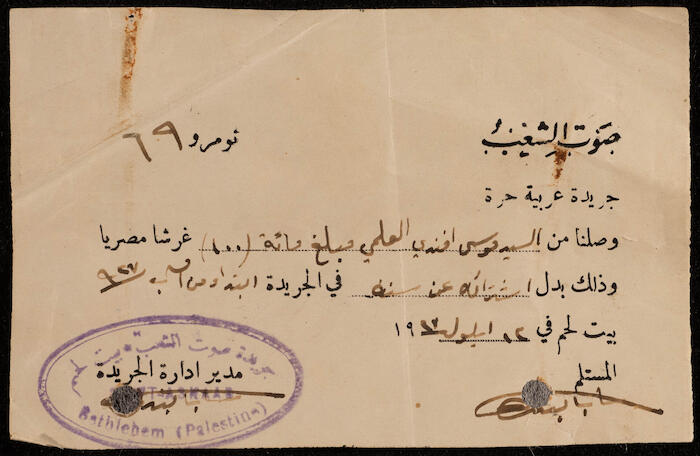 صوت الشعب
نومرو ٦٩
جريدة عربية حرة
وصلنا من السيد موسى افندي العلمي مبلغ مائة (١٠٠) غرشا مصريا
وذلك بدل اشتراكه عن سنة في الجريدة ابتداء من آب ٩٢٧
بيت لحم في ١٢ ايلول ١٩٢٧
المستلم
مدير ادارة الجريدة
جريدة صوت الشعب بيت لحم
Bethlehem (Palestine)